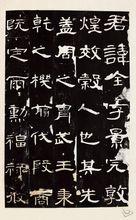 君諱全字景完敦
煌效穀人也其先
蓋周之胄武王秉
乾之機翦伐殷商
既定爾勳福祿攸